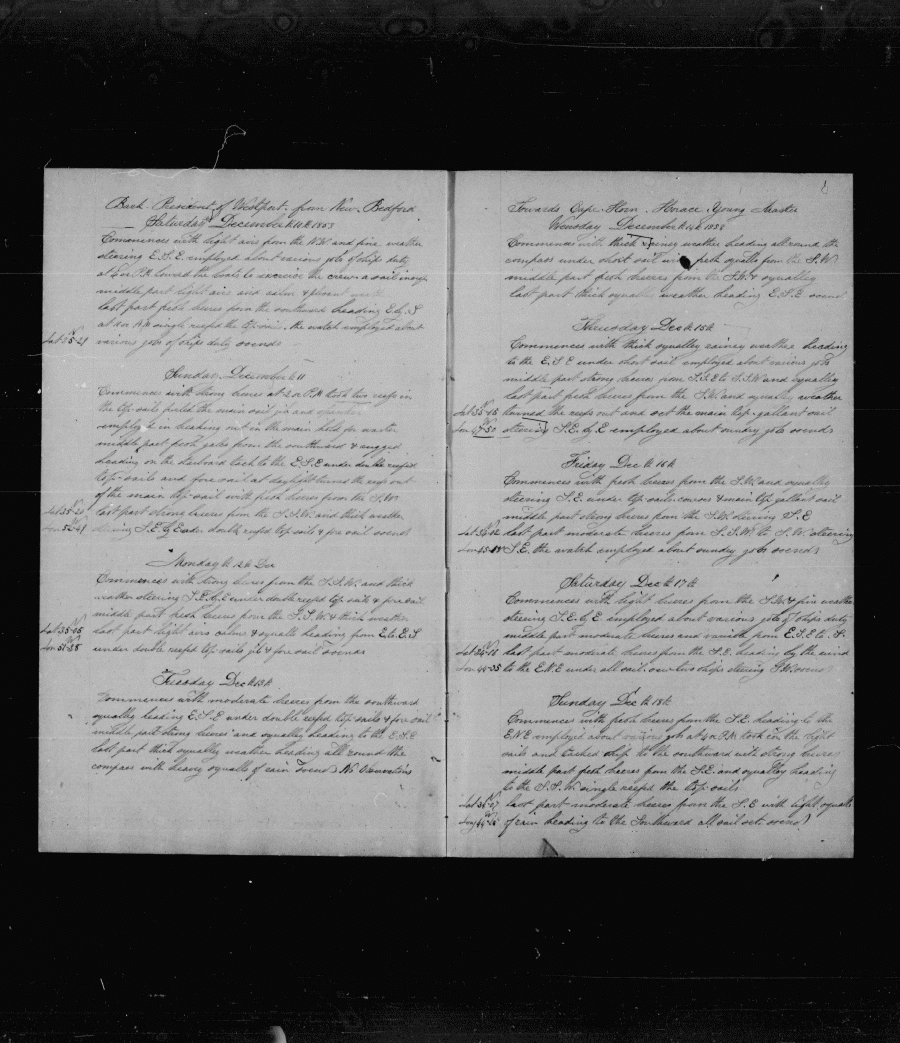 Bark President of Westport from New Bedford
Saturday December 10th 1853
Commences with light airs from the N.W and fine weather
steering E.S.E employed about various jobs of ships duty
at 4 oc P.M lowered the boats to exercise the crew a sail in sight
middle part light airs and calm & plesent
last part fresh breeses from the southward heading E.by.S
at 8 oc A.M single reefd the top-sails. the watch employed about
Lat 35-28 various jobs of ships duty so ends
Sunday. December 11
Commences with strong breeses at 2 oc P.M took two reefs in
the top sails furld the main sail jib and spanker
employ in breaking out in the main hold for water
middle part fresh gales from the southward & rugged
heading on the starboard tack to the E.S.E under double reefd
top-sails and fore sail at daylight turned the reefs out
of the main top-sail with fresh breeses from the S.W
Lat 35-20 last part strong breeses from the S.S.W. and thick weather
Lon 52-41 steering S.E.by.E under double reefd top sails & fore sail so ends
Monday 12th Dec
Commences with strong breeses from the S.S.W. and thick
weather steering S.E.by.E under double reefd top sails & fore sail
middle part fresh breeses from the S.S.W. & thick weather
Lat 35-05 last part light airs calms & squalls heading from E. to E.S
Lon 51-28 under double reefd top sails jib & fore sail so ends
Tuesday Dec 13th
Commences with moderate breeses from the southward
squalley heading E.S.E under double reefd top-sails & fore sail
middle part strong breeses and squalley heading to the E.S.E
last part thick squalley weather heading all round the
compass with heavy squalls of rain so ends No Observations
Towards Cape Horn. Horace Young Master
Wensday December 14th 1853
Commences with thick rainey weather heading all round the
compass under short sail with fresh squalls from the S.W.
middle part fresh breeses from the S.W. & squalley
last part thick squalley weather heading E.S.E so ends
Thursday Dec 15th
Commences with thick squalley rainey weather heading
to the E.S.E under short sail employed about various jobs
middle part strong breeses from S.S.E to S.S.W and squalley
last part fresh breeses from the S.W and squaley weather
Lat 35-45 turned the reefs out and set the main top-gallant sail
Lon 47-50 steering S.E.by.E employed about sundry jobs so ends
Friday Dec 16th
Commences with fresh breeses from the S.W. and squalley
steering S.E under top sails courses & main top gallant sail
middle part strong breeses from the S.W. steering S.E
last part moderate breeses from S.S.W. to S.W. steering
Lon 45- S.E. the watch employed about sundry jobs so ends
Saturday Dec 17th
Commences with light breeses from the S.W. & fine weather
steering S.E.by.E. employed about various jobs of ships duty
middle part moderate breeses and variable from E.S.E to S.
last part moderate breeses from the S.E. heading by the wind
Lon 44-35 to the E.N.E under all sail saw two ships steering S.W. so ends
Sunday Dec 18th
Commences with fresh breeses from the S.E. heading to the
E.N.E employed about various jobs at 4 oc P.M took in the light
sails and tacked ship to the southward with strong breeses
middle part fresh breeses from the S.E. and squalley heading
to the S.S.W. single reefd the top-sails
Lat 36-07 last part moderate breeses from the S.E with light squalls
of rain heading to the Southward all sail set. so ends